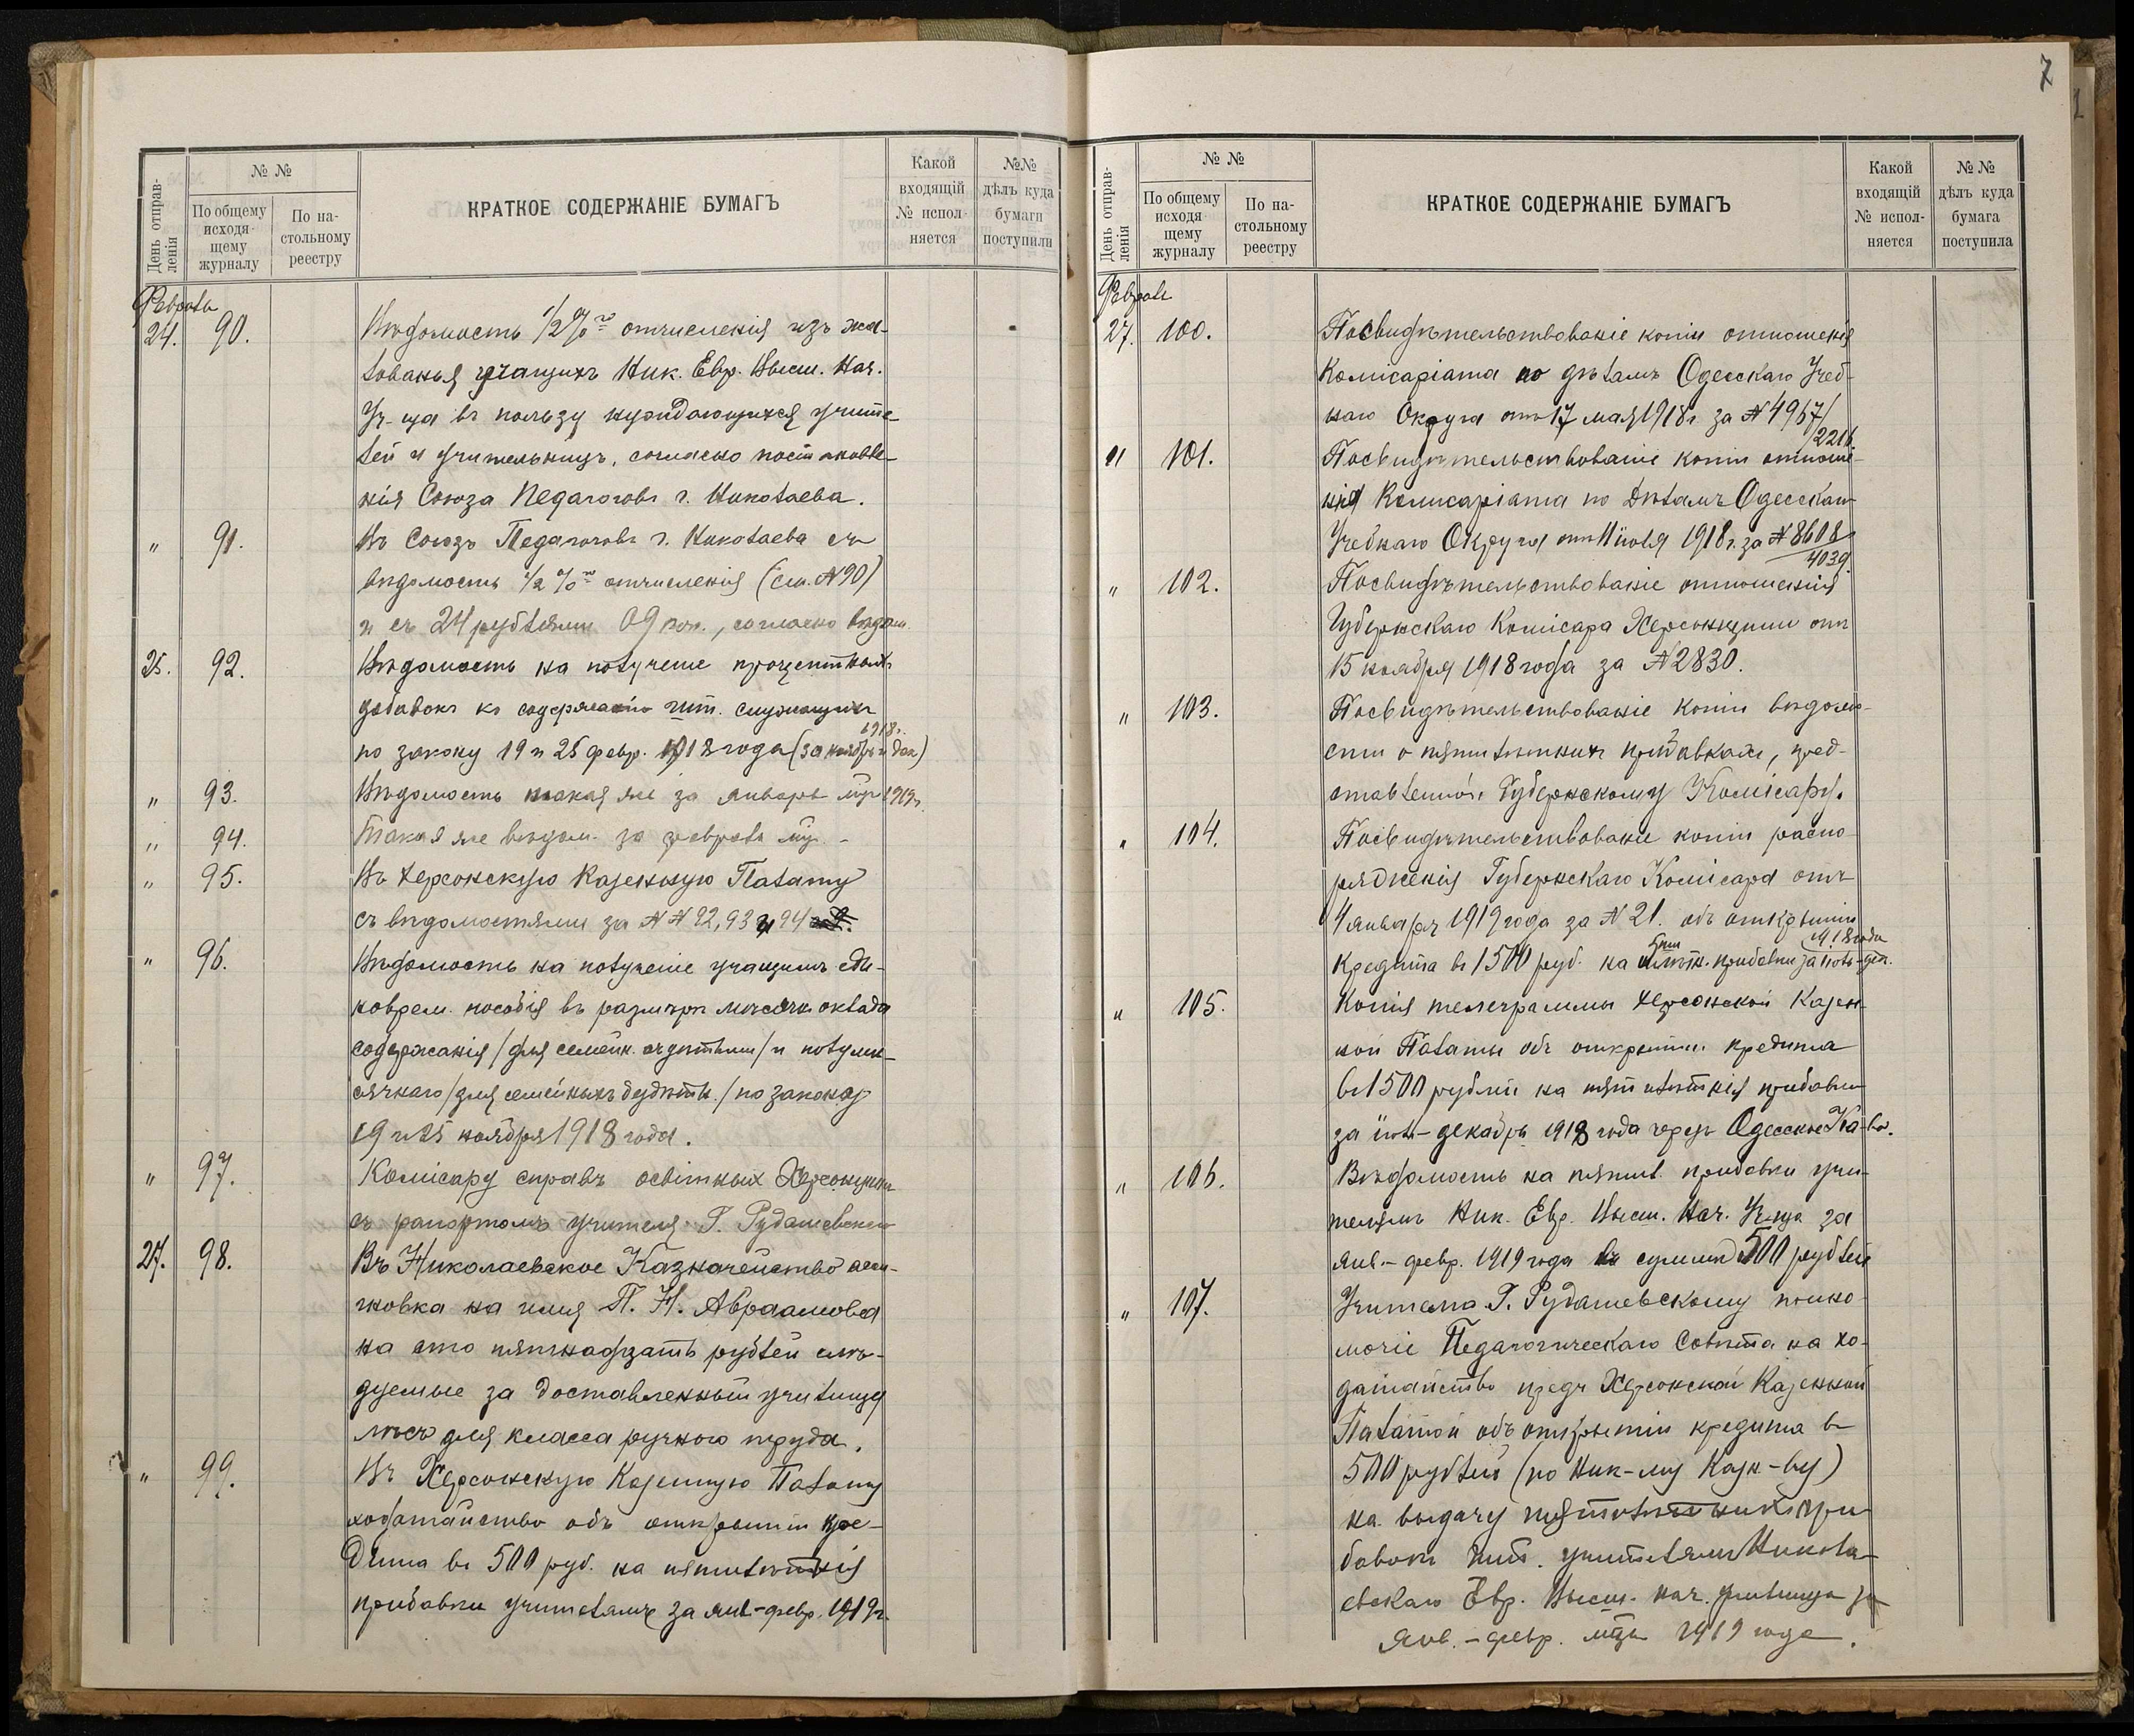 7
День отправ-
ленія
№ №
По общему
исходя-
щему
журналу
По на-
стольному
реестру
КРАТКОЕ СОДЕРЖАНІЕ БУМАГЪ
Какой
входящій
№ испол-
няется
№№
дѣлъ куда
бумаги
поступили
Февраль
24. 90. Вѣдомость 1/2 %го отчисленія изъ жа-
лованья учащихъ Ник. Евр. Высш. Нач.
Уч-ща въ пользу нуждающихся учите-
лей и учительницъ, согласно постановле-
нія Союза Педагоговъ г. Николаева.
" 91. Въ Союзъ Педагоговъ г. Николаева съ
вѣдомость 1/2 %го отчисленія (см. № 90)
и съ 24 рублями 09 коп., согласно вѣдом.
25. 92. Вѣдомость на полученіе процентныхъ
добавокъ къ содержанію шт. служащихъ
1918 г.
по закону 19 и 25 февр. 1918 года (за ноябрь и дек.)
" 93. Вѣдомость такая же за январь м-цъ 1919 г.
" 94. Такая же вѣдом. за февраль м-цъ
" 95. Въ Херсонскую Казенную Палату
съ вѣдомостями за № № 92, 93 и 94
" 96. Вѣдомость на полученіе учащимъ еди-
новрем. пособія въ размѣрѣ мѣсячн. оклада
содержанія /для семейн. съ дѣтьми/ и полумѣ-
сячнаго /для семейныхъ бездѣтн./ по закону
19 и 25 ноября 1918 года.
" 97. Комісару справъ освітныхъ Херсонщини
съ рапортомъ учителя Г. Рудашевскаго
27. 98. Въ Николаевское Казначейство асси-
гновка на имя П. Н. Авраамова
на сто пятнадцать рублей слѣ-
дуемые за доставленный училищу
лѣсъ для класса ручного труда.
" 99. Въ Херсонскую Казенную Палату
ходатайство объ открытіи кре-
дита въ 500 руб. на пятилѣтнія
прибавки учителямъ за янв-февр. 1919 г.
День отправ-
ленія
№ №
По общему
исходя
щему
журналу
По на-
стольному
реестру
КРАТКОЕ СОДЕРЖАНІЕ БУМАГЪ
Какой
входящій
№ испол-
няется
№ №
дѣлъ куда
бумага
поступила
Февраль
27. 100. Посвидѣтельствованіе копіи отношенія
Комісаріата по дѣламъ Одесскаго Учеб-
наго Округа отъ 17 мая 1918 г. за № 4967/
2216.
" 101. Посвидѣтельствованіе копіи отноше-
нія Комисаріата по Дѣламъ Одесскаго
Учебнаго Округа отъ 11 іюля 1918 г. за № 8608
4039.
" 102. Посвидѣтельствованіе отношенія
Губернскаго Комісара Херсонщини отъ
15 ноября 1918 года за № 2830.
" 103. Посвидѣтельствованіе копіи вѣдомо-
сти о пятилѣтнихъ прибавкахъ, пред-
ставленной Губернскому Комісару.
" 104. Посвидѣтельствованіе копіи распо-
ряженія Губернскаго Комісара отъ
4 января 1919 года за № 21. объ открытіи
5ти 1918 года
кредита въ 1500 руб. на лѣтн. прибавки за іюль-дек.
" 105. Копія телеграммы Херсонской Казен-
ной Палаты объ открытіи кредита
въ 1500 рублей на пятилѣтнія прибавки
за іюль-декабрь 1918 года черезъ Одесское Ка-во.
" 106. Вѣдомость на пятил. прибавки учи-
телямъ Ник. Евр. Высш. Нач. Уч-ща за
янв.-февр. 1919 года въ суммѣ 500 рублей
" 107. Учителю Г. Рудашевскому полно-
мочіе Педагогическаго Совѣта на хо-
датайство предъ Херсонской Казенной
Палатой объ открытіи кредита въ
500 рублей (по Ник-му Казн-ву)
на выдачу пятилѣтнихъ при-
бавокъ шт. учителямъ Никола-
евскаго Евр. Высш. нач. училища за
янв.-февр. м-цы 1919 года.